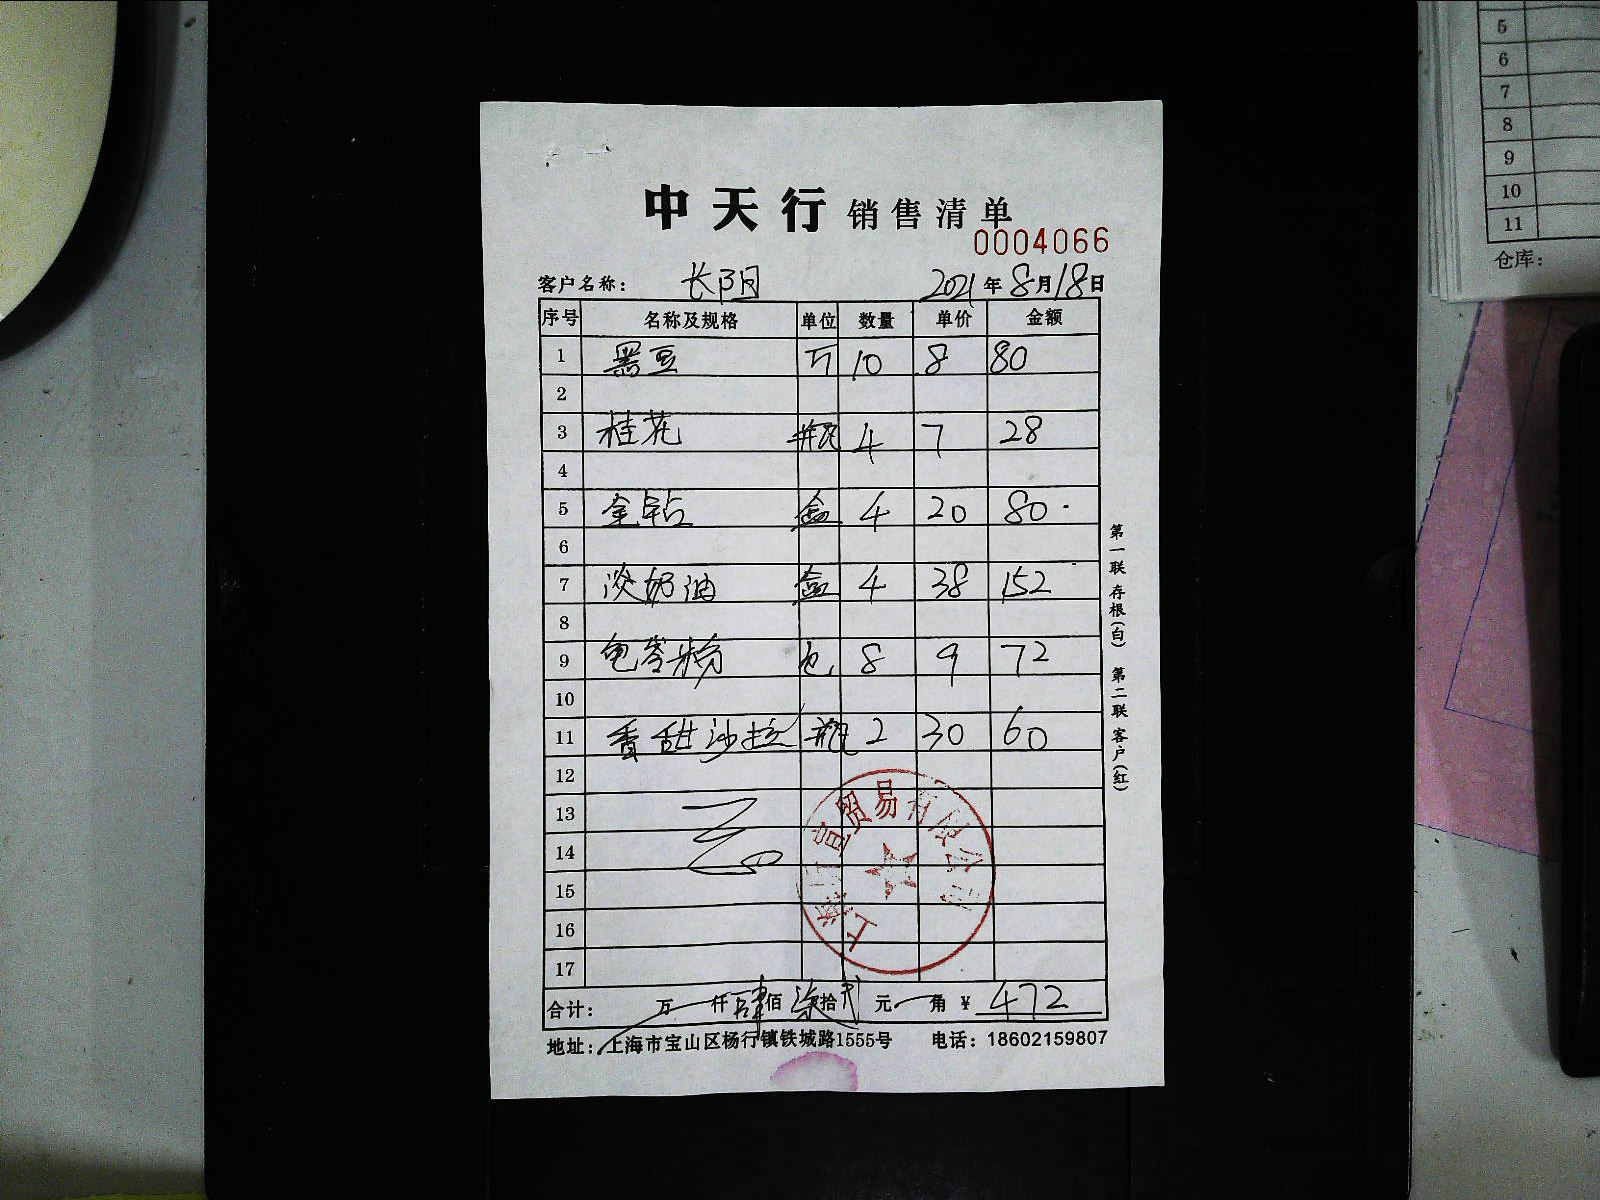 中天行 销售清单
0004066
客户名称： 长阳 2021年8月18日
序号 名称及规格 单位 数量 单价 金额
1 黑豆 斤 10 8 80
2
3 桂花 瓶 4 7 28
4
5 金钻 盒 4 20 80
6
7 淡奶油 盒 4 38 152
8
9 龟苓粉 包 8 9 72
10
11 香甜沙拉 瓶 2 30 60
12
13
14
15
16
17
合计： 万 仟肆佰柒拾贰元 角 ￥ 472
地址：上海市宝山区杨行镇铁城路1555号 电话：18602159807
第一联 存根（白） 第二联 客户（红）
宣贸易有限公司
5
6
7
8
9
10
11
仓库：